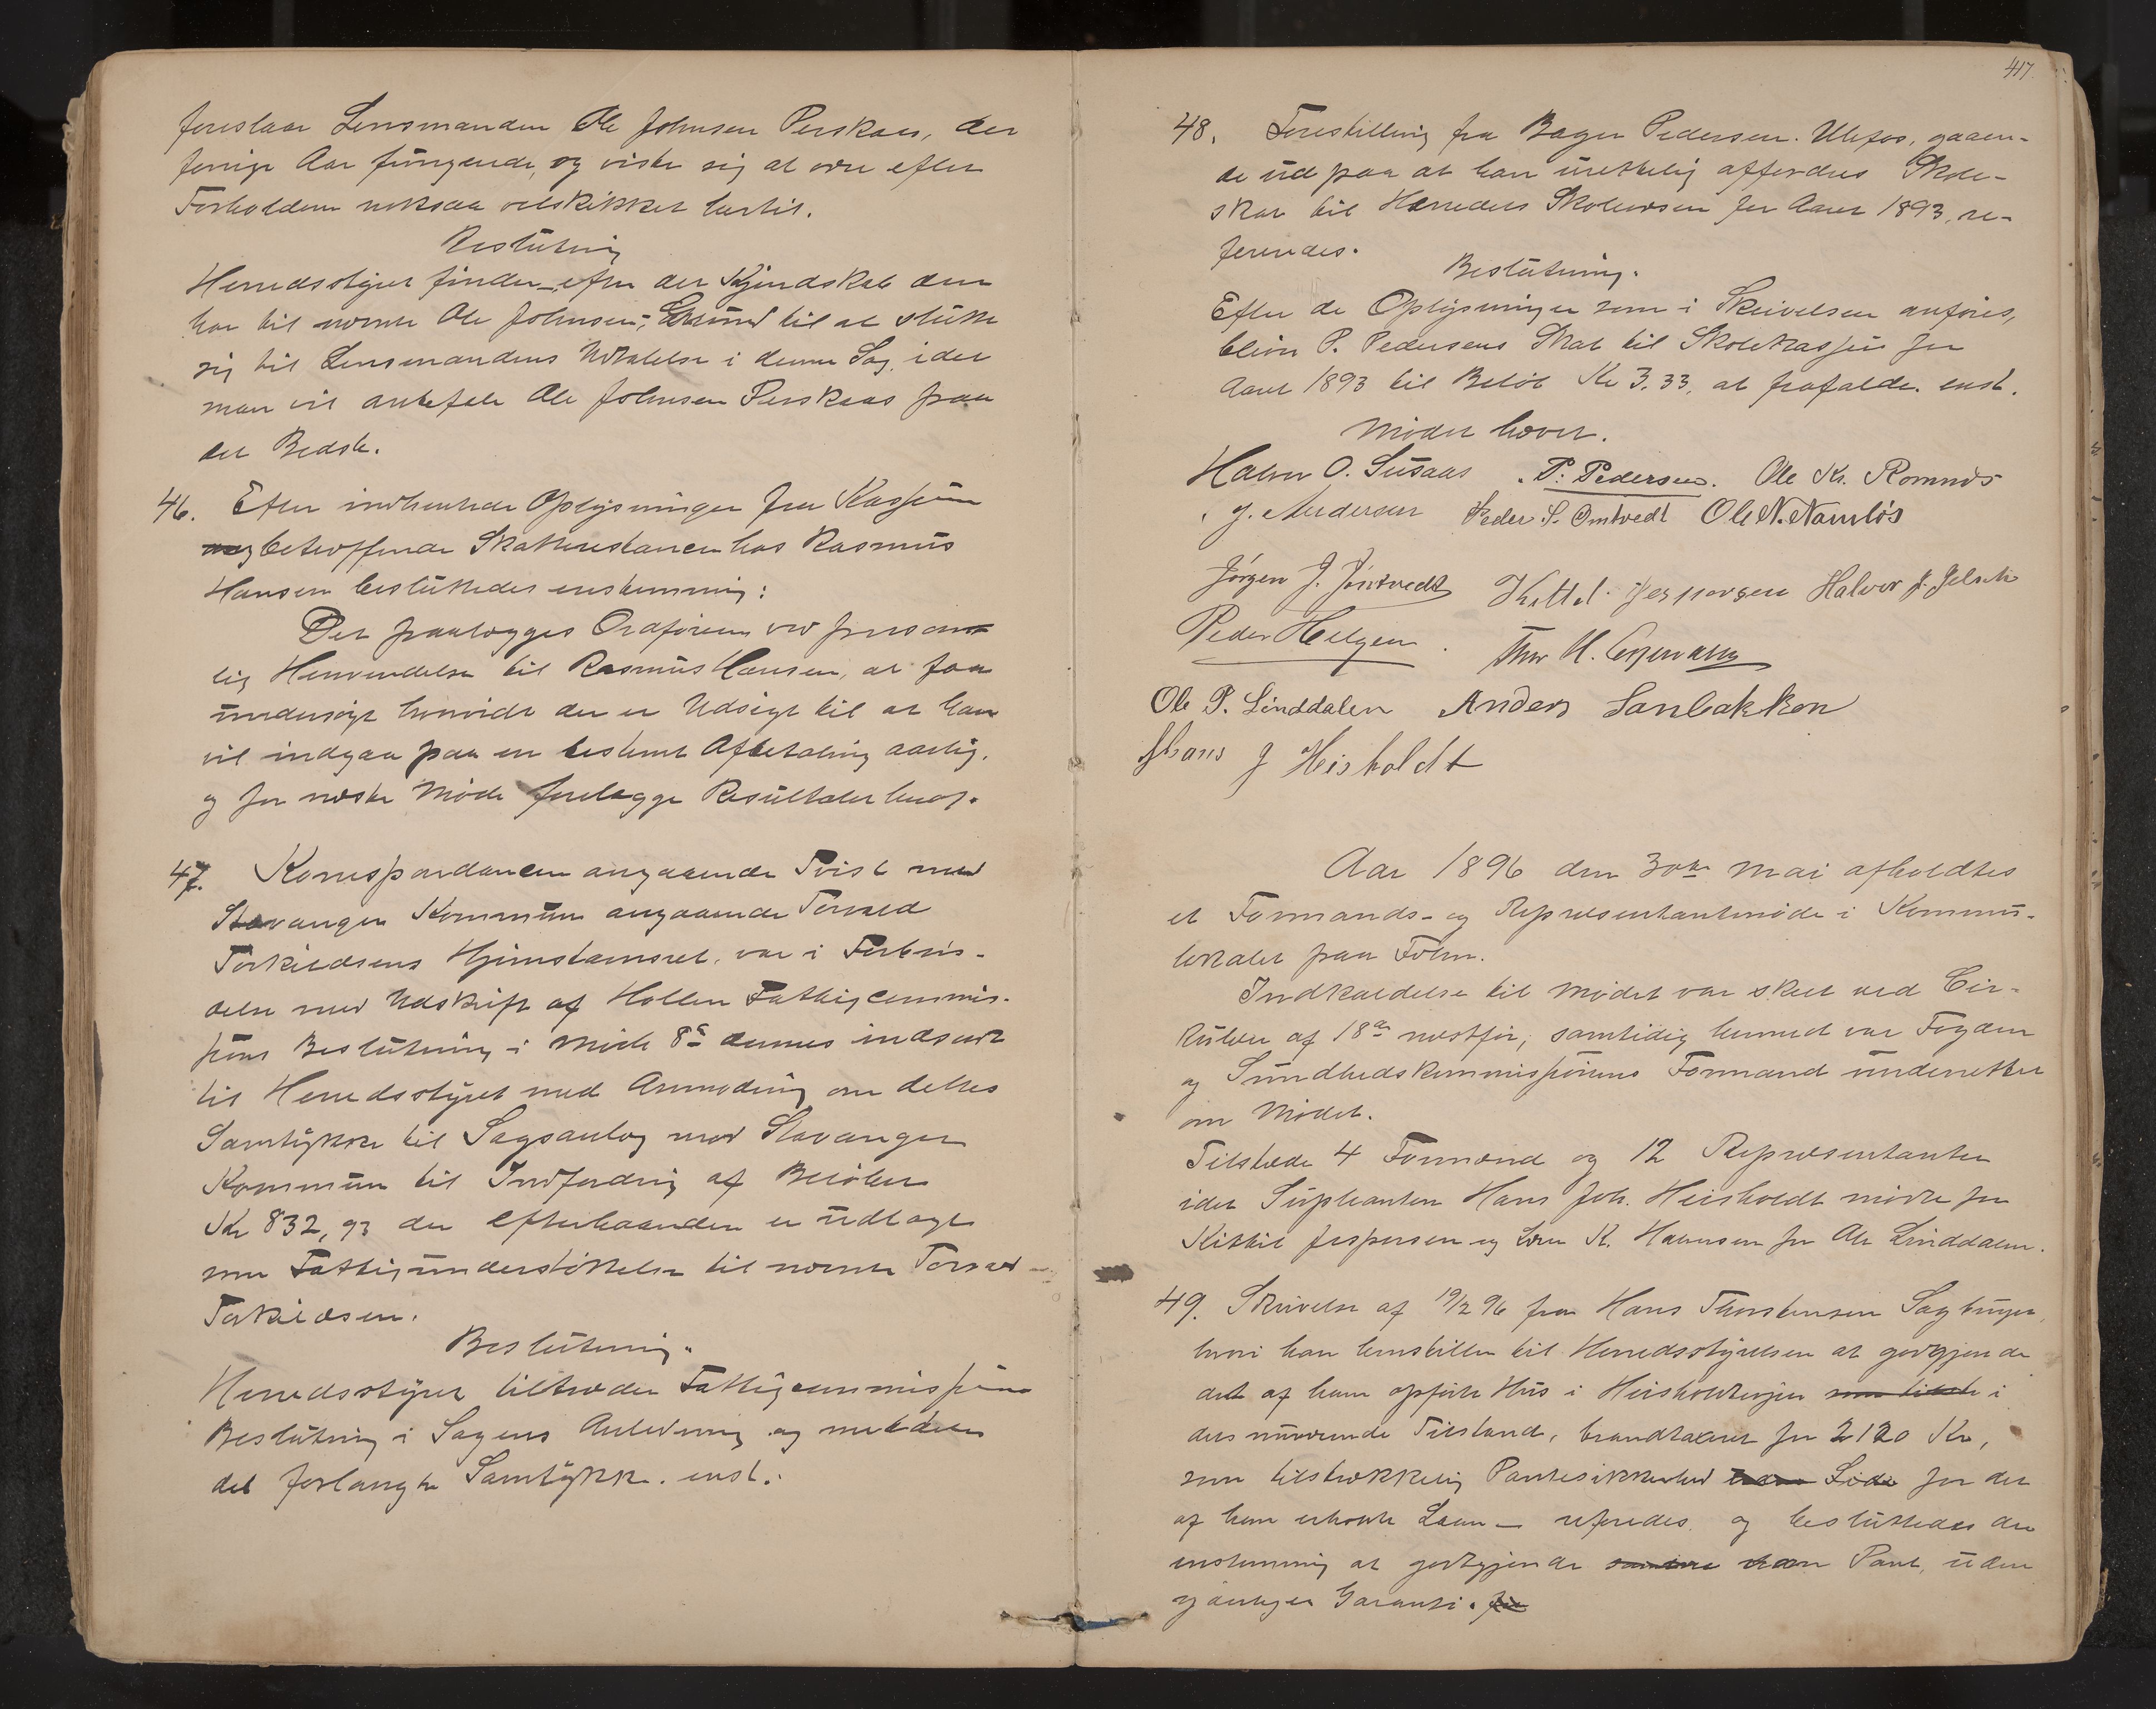 foreslaar Lensmanden Ole Johnsen Perskaas, der
forrige Aar fungerede, og viste sig at være efter
Forholdene noksaa velskikket hertil.
Beslutning
Herredsstyret finder – efter det Kjendskab den
har til nævnte Ole Johnsen – Grund til at slutte
sig til Lensmandens Udtalelse i denne Sag, idet
man vil anbefale Ole Johnsen Perskaas paa
det Bedste.
46. Efter indhentede Oplysninger fra Kassereren
betræffende Skatterestancen hos Rasmus
Hansen besluttedes enstemmig:
Det paalægges Ordføreren ved person-
lig Henvendelse til Rasmus Hansen, at faa
undersøgt hvorvidt der er Udsigt til at han
vil indgaa paa en bestemt Afbetaling aarlig,
og for næste Møde forelægge Resultatet heraf.
47. Korrespondancen angaaende Tvist med
Stavanger Kommune angaaende Torvald
Torkildsens Hjemstavnsret, var i Forbin-
delse med Udskrift af Hollen Fattigcommis-
sions Beslutning i Møde 8de dennes indsendt
til Herredsstyret med Anmodning om dettes
Samtykke til Sagsanlæg mod Stavanger
Kommune til Indfordring af Beløbet
Kr 832,93 der efterhaanden er udlagt
som Fattigunderstøttelse til nævnte Torvald
Torkildsen.
Beslutning.
Herredsstyret tiltræder Fattigcommissionens
Beslutning i Sagens Anledning og meddeler
det forlangte Samtykke. enst.
417.
48. Forestilling fra Bager Pedersen. Ulefos, gaaen-
de ud paa at han urettelig affordres Skole-
skat til Herredets Skolevæsen for Aaret 1893, re-
fereredes.
Beslutning.
Efter de Oplysninger som i Skrivelsen anføres,
bliver P. Pedersens Skat til Skolekassen for
Aaret 1893 til Beløb Kr 3.33, at frafalde. enst.
Mødet hævet.
Halvor O. Susaas P. Pedersen. Ole Kr. Romnæs
J. Andersen Peder S. Omtvedt Ole N. Namløs
Jørgen J. Jøntvedt Kittel Jespersen Halvor J.
Peder Helgen Thor H.
Ole P. Linddalen Anders Sanbakken
Hans J Heisholdt
Aar 1896 den 30te Mai afholdtes
et Formands- og Repræsentantmøde i Kommu-
lokalet paa Folm.
Indkaldelse til Mødet var skeet ved Cir-
kulær af 18de næstfør, samtidig hermed var Fogden
og Sundhedskommissionens Formand underrettet
om Mødet.
Tilstede 4 Formænd og 12 Repræsentanter
idet Supleanten Hans Joh. Heisholdt mødte for
Kittil Jespersen og K. Halvorsen for Ole Linddalen.
49. Skrivelse af 19/2 96 fra Hans Thorstensen Sagbruget,
hvori han henstiller til Herredsstyrelsen at godkjende
det af ham opførte Hus i Heisholdteien i
dets nuværende Tilstand, brandtaxeret for 2120 Kr,
som tilstrækkelig Pantesikkerhed for det
af ham erholdte Laan – referedes og besluttedes det
enstemmig at godkjende Pant, uden
yderligere Garanti.